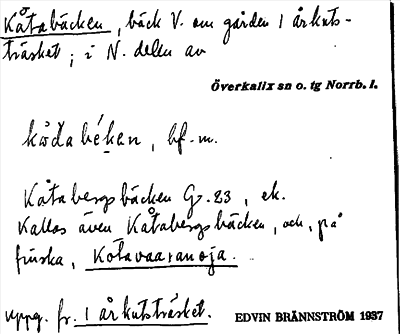 Kåtabäcken, bäck V. om gården 1 årkuts-
träsket; i N. delen av
Överkalix sn o. tg Norrb. l.
kåd̀abéken, bf. m.
Kåtabergsbäcken G. 23, ek.
Kallas även Kåtabergsbäcken, och, på
finska, Kotavaaranoja.
uppg. fr. 1 årkutsträsket.
EDVIN BRÄNNSTRÖM 1937